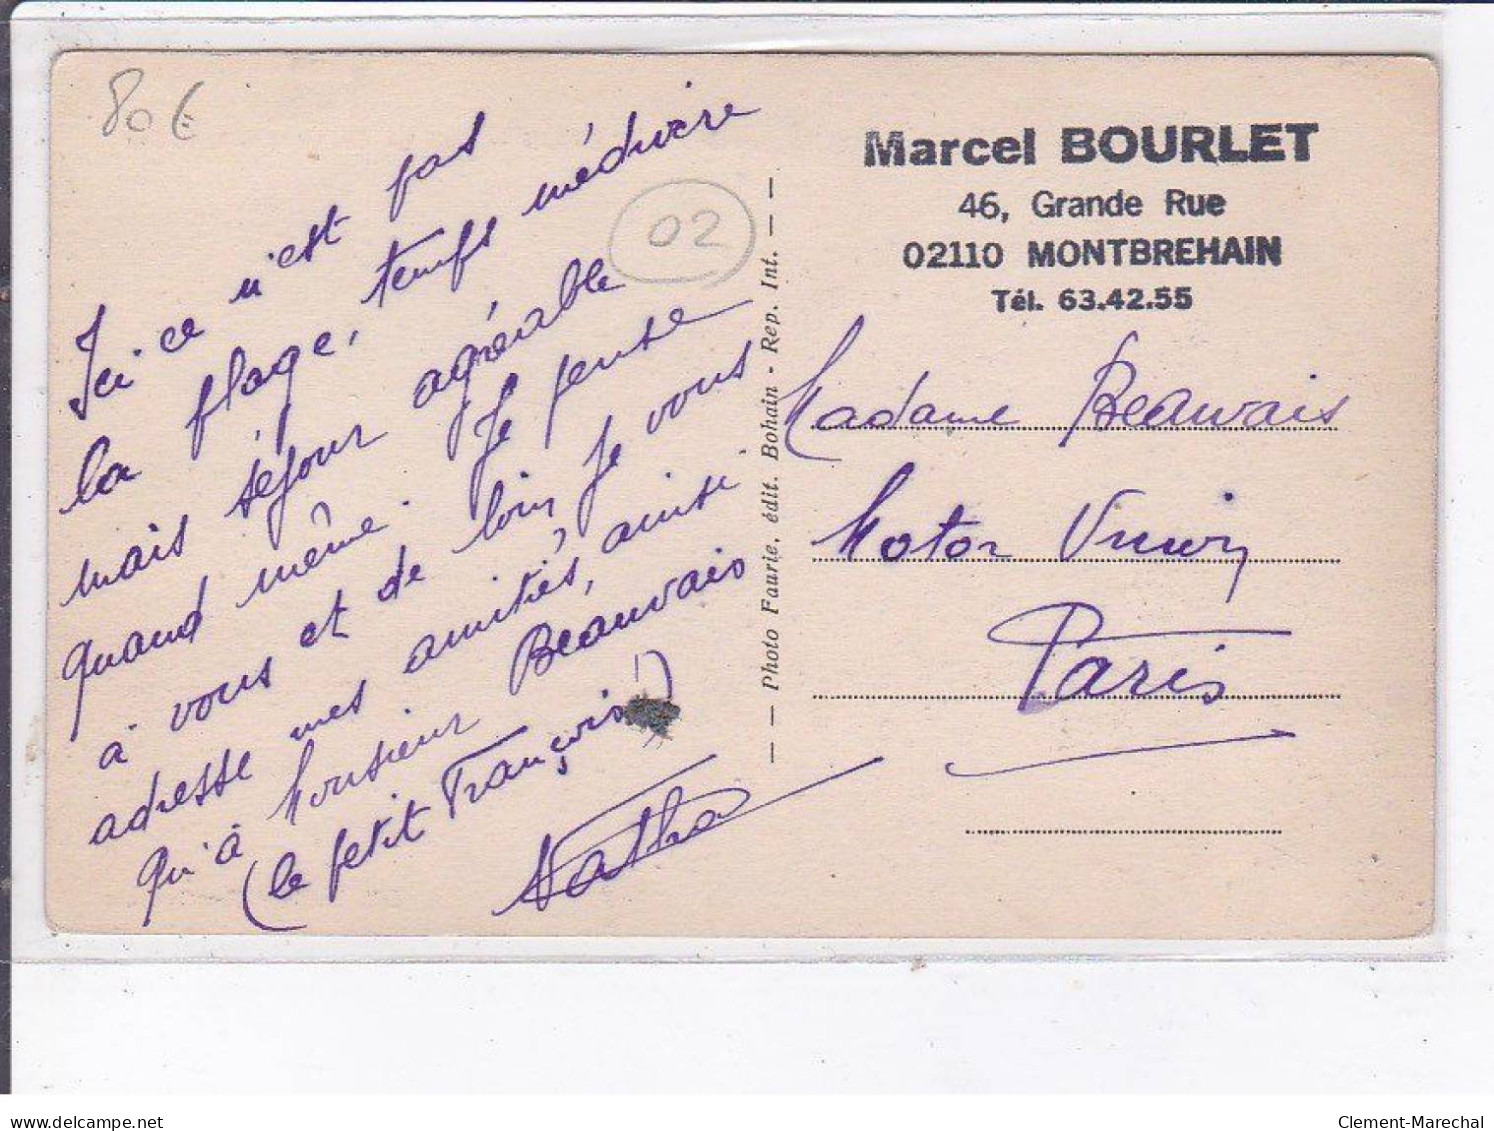 80€
Ici ce n'est pas
la plage, temps médiocre
mais séjour agréable
quand même. Je pense
à vous et de loin je vous
adresse mes amitiés, ainsi
qu'à Monsieur Beauvais
(le petit François!)
Natha
02
Photo Faurie, édit. Bohain - Rep. Int.
Marcel BOURLET
46, Grande Rue
02110 MONTBREHAIN
Tél. 63.42.55
Madame Beauvais
Motor Union
Paris
delcampe.net
Clement-Marechal